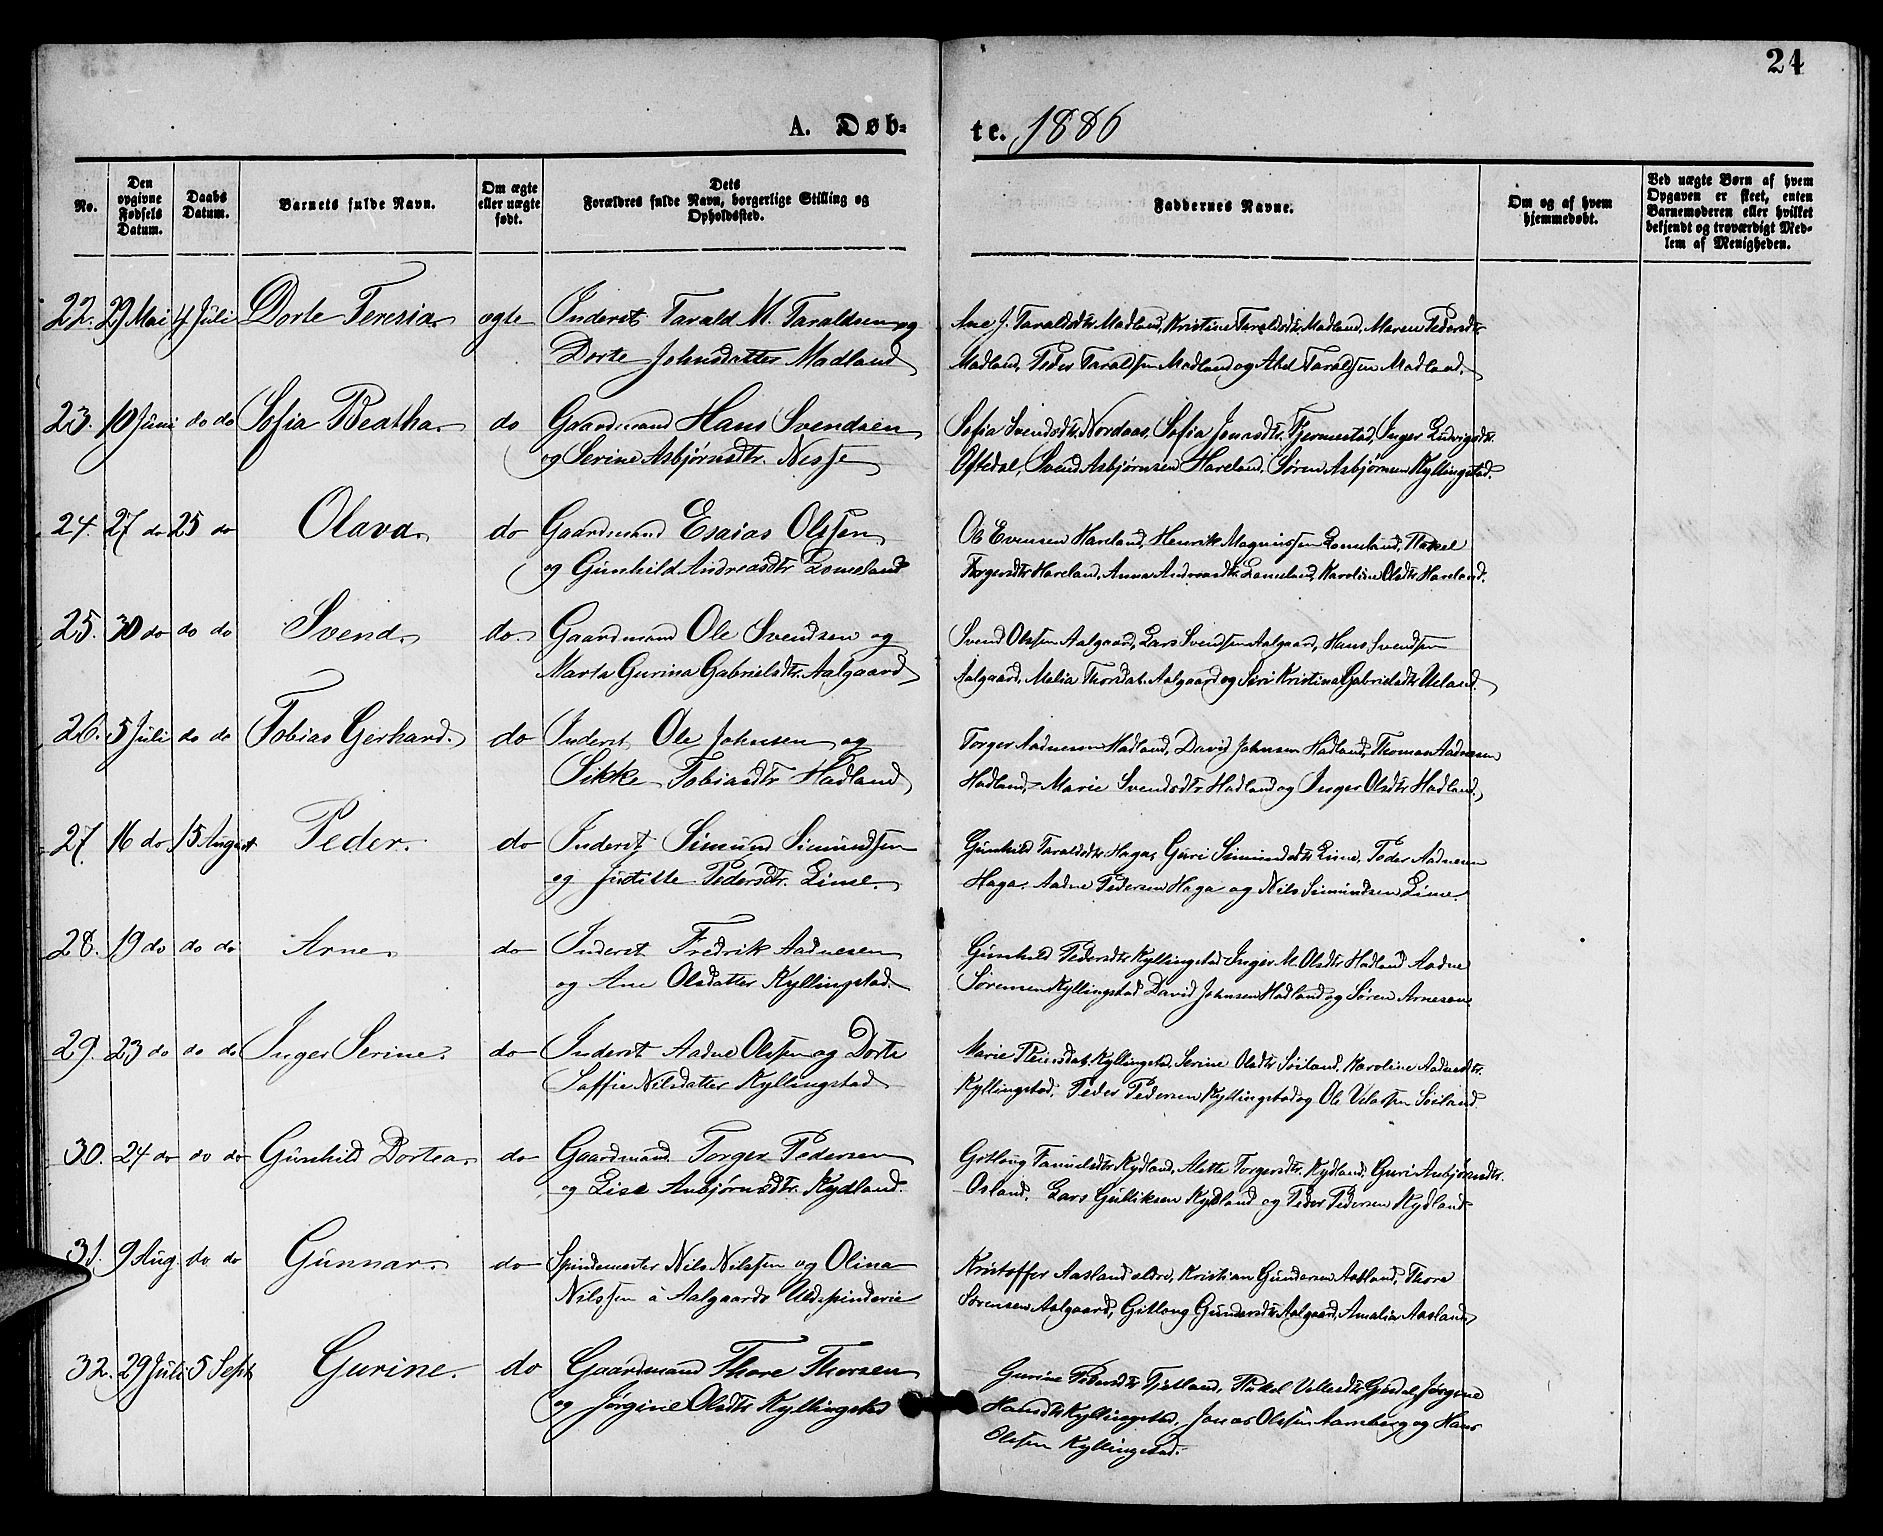 24
A. Døb-
te. 1886
No.
Den
opgivne
Fødsels
Datum.
Daabs
Datum.
Barnets fulde Navn.
Om ægte
eller uægte
født.
Dets
Forældres fulde Navn, borgerlige Stilling og
Opholdssted.
Faddernes Navne.
Om og af hvem
hjemmedøbt.
Ved uægte Børn af hvem
Opgaven er skeet, enten
Barnemoderen eller hvilket
bekjendt og troværdigt Med-
lem af Menigheden.
22. 29 Mai 4 Juli Dorte Teresia. ægte Inderst Tarald M. Taraldsen og
Dorte Johnsdatter Madland
Ane J. Taraldsdtr Madland, Kristine Taraldsdtr Madland, Maren Pedersdtr
Madland, Peder Taraldsen Madland og Abel Taraldsen Madland.
23. 10 Juni do do Sofia Beatha. do Gaardmand Hans Svendsen
og Serine Asbjørnsdtr. Nesse
Sofia Svendsdtr. Nordaas, Sofia Jonasdtr. Fjermestad, Inger Ludvigsdtr.
Oftedal, Svend Asbjørnsen Haveland, Søren Asbjørnsen Kyllingstad.
24. 27 do 25 do Olava. do Gaardmand Esaias Olssen
og Gunhild Andreasdtr Lomeland
Ole Evensen Haveland, Henrik Magnussen Lomeland, Rakel
Torgersdtr Haveland, Anna Andreasdtr Lomeland, Karoline Olsdtr Haveland.
25. 30 do do do Svend. do. Gaardmand Ole Svendsen og
Marta Gurina Gabrielsdtr. Aalgaard
Svend Olssen Aalgaard, Lars Svendsen Aalgaard, Hans Svendsen
Aalgaard, Malia Thorsdat. Aalgaard og Siri Kristina Gabrielsdtr Ueland.
26. 5 Juli do do Tobias Gerhard. do Inderst Ole Johnsen og
Sikke Tobiasdtr Hadland
Torger Aadnesen Hadland, David Johnsen Hadland, Thomas Aadnesen
Hadland, Marie Svendsdtr Hadland og Inger Olsdtr Hadland.
27. 16 do 15 August Peder. do Inderst Simund Simundsen
og Pedersdtr. Lime.
Gunhild Taraldsdtr Haga, Guri Simundsdtr Lime, Peder Aadnesen
Haga, Aadne Pedersen Haga og Nils Simundsen Lime.
28. 19 do do do Arne do Inderst Fredrik Aadnesen
og Ane Olsdatter Kyllingstad.
Gunhild Pedersdtr Kyllingstad Inger M. Olsdtr Hadland Aadne
Sørensen Kyllingstad David Johnsen Hadland og Søren Arnesen
29. 23 do do do Inger Serine. do Inderst Aadne Olssen og Dorte
Saffie Nilsdatter Kyllingstad
Marie Kyllingstad, Serine Olsdtr Søiland, Karoline Aadnesdtr.
Kyllingstad, Peder Pedersen Kyllingstad og Ole Søiland.
30. 24 do do do Gunhild Dortea. do Gaardmand Torger Pedersen
og Lise Asbjørnsdtr. Kydland.
Gitlaug Kydland, Alette Torgersdtr. Kydland, Guri Asbjørnsdtr.
Osland, Lars Gulliksen Kydland og Peder Pedersen Kydland
31. 9 Aug. do do Gunnar. do Spindemester Nils Nilssen og Olina
Nilssen à Aalgaards Uldspinderie
Kristoffer Aasland eldre, Kristian Gundersen Aasland, Thore
Sørensen Aalgaard, Gitlaug Gundersdtr Aalgaard, Amalia Aasland
32. 29 Juli 5 Sept Gurine. do Gaardmand Thore Thorsen
og Jørgine Olsdtr Kyllingstad
Gurine Pedersdtr Fjetland, Rakel Jørgine
Hansdtr Kyllingstad, Jonas Olssen og Hans
Olssen Kyllingstad.